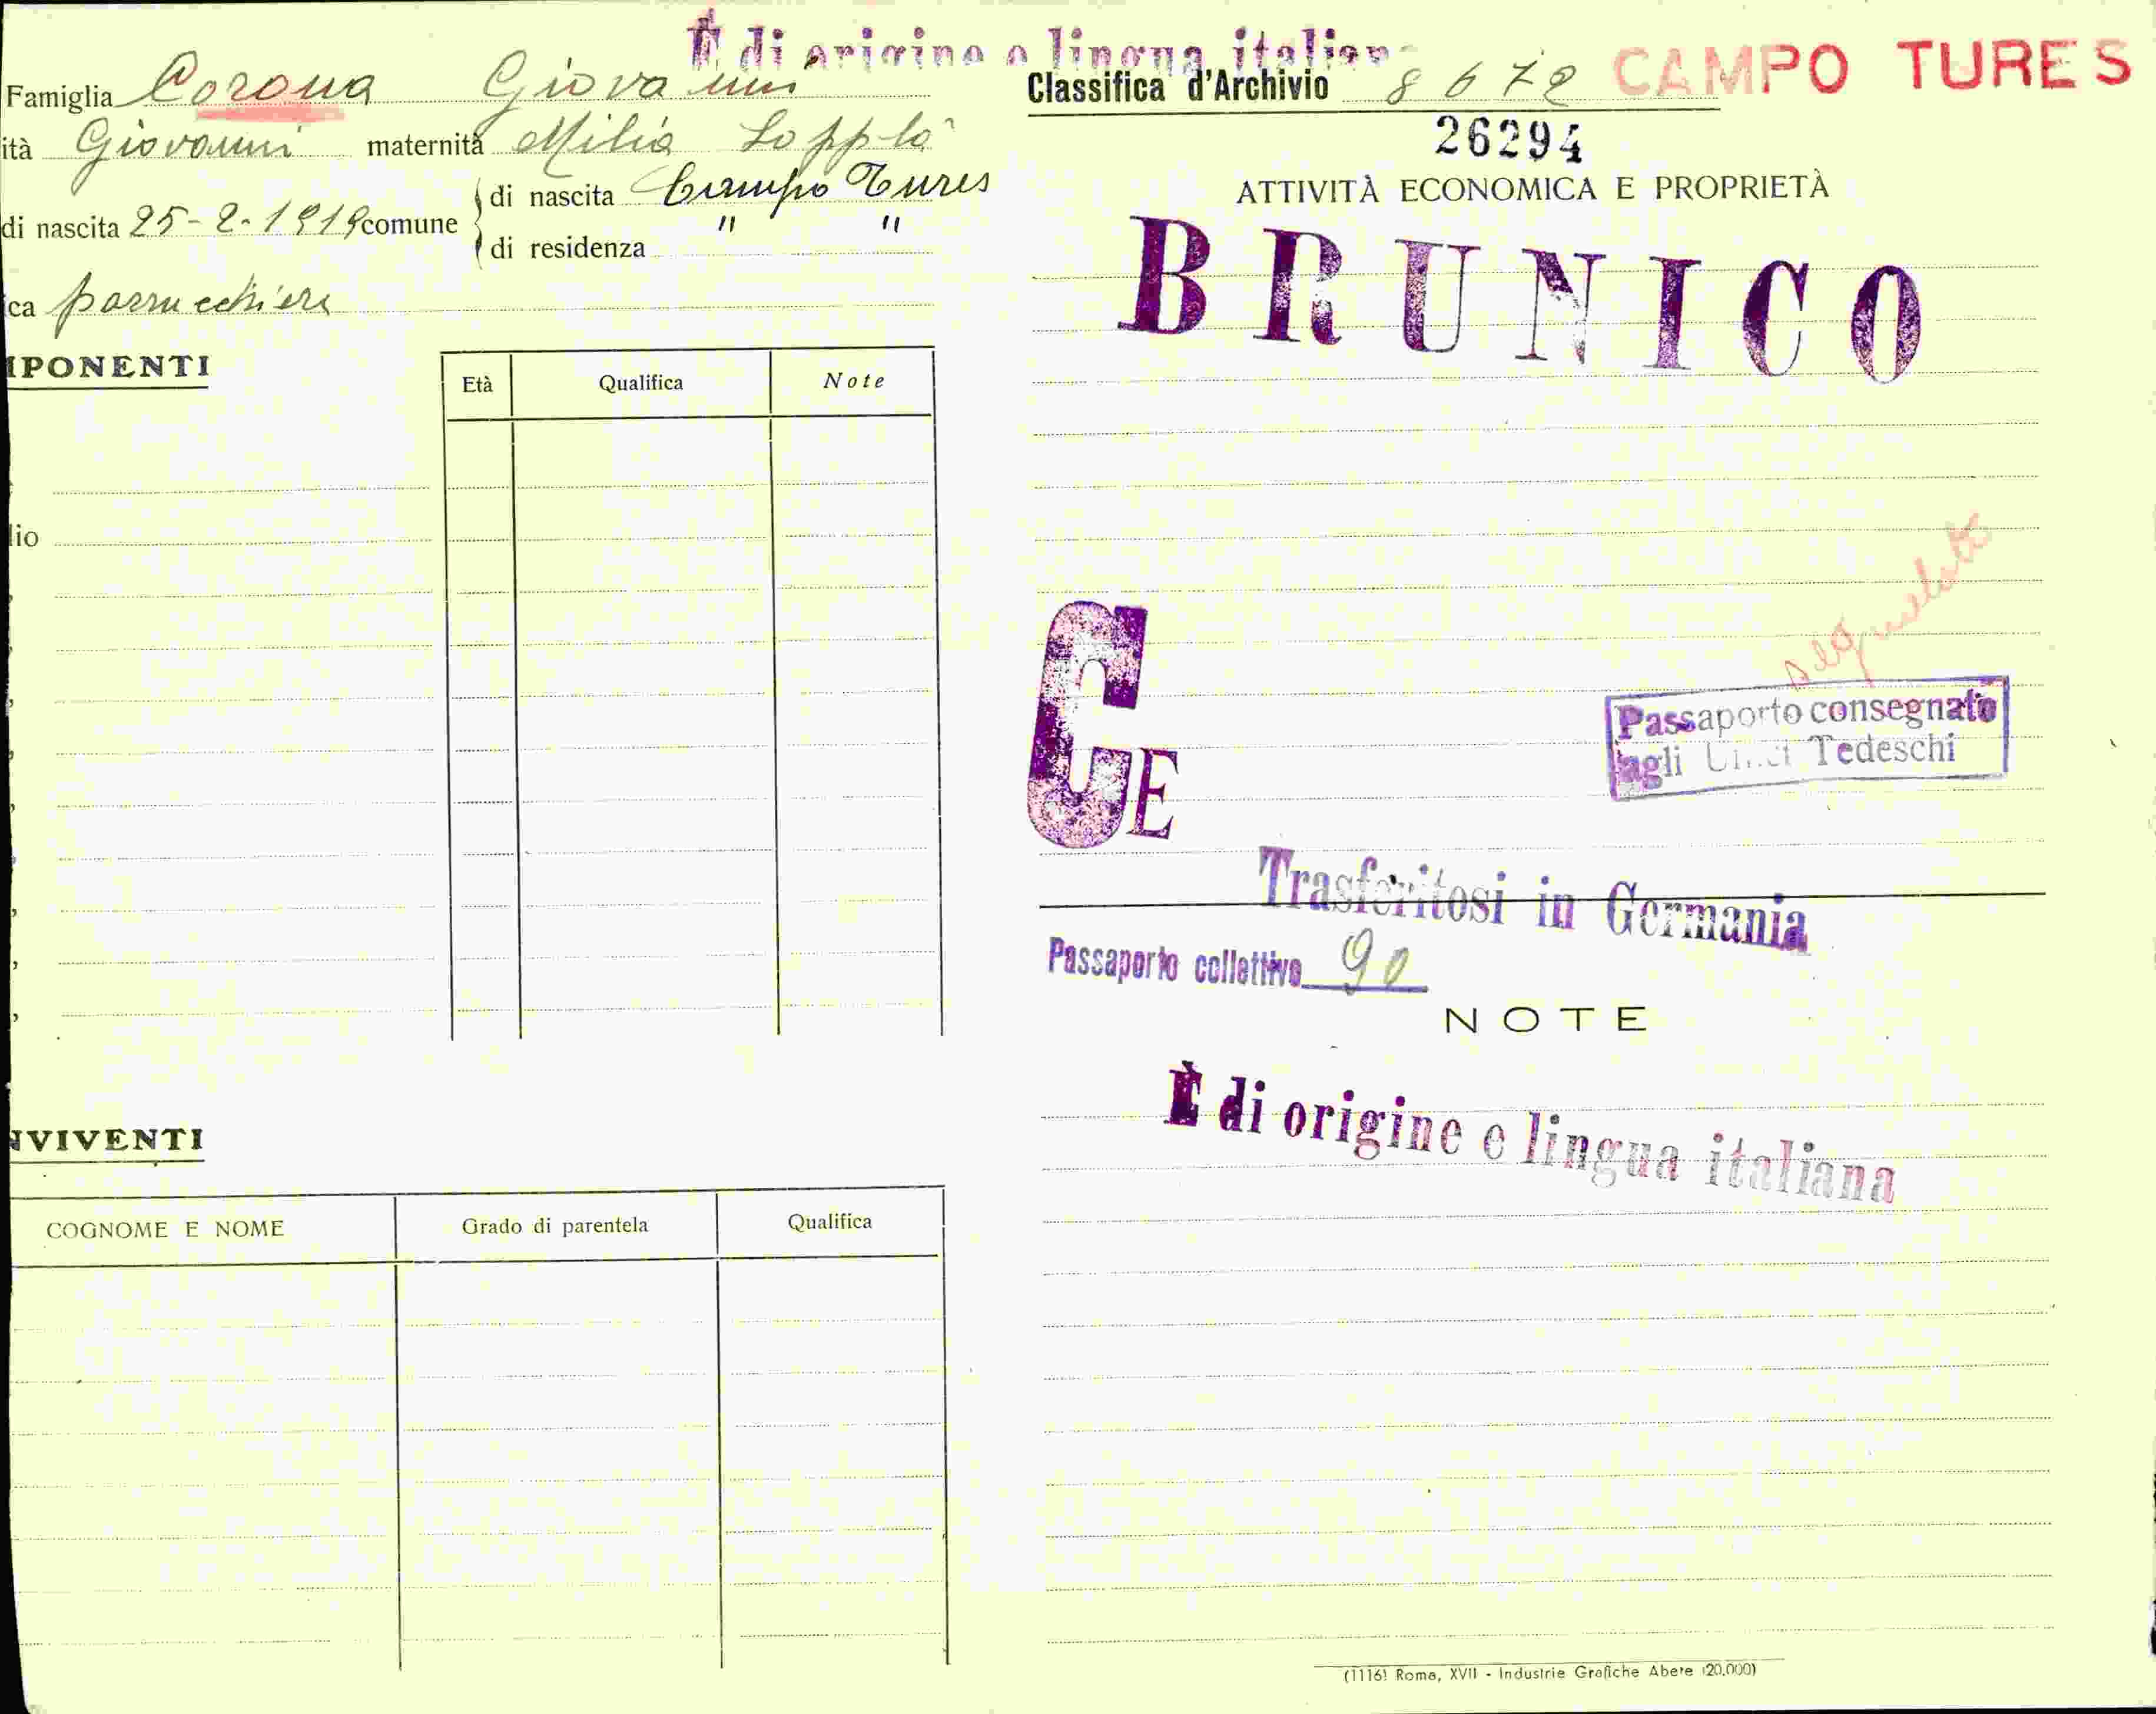 È di origine e lingua italian
Famiglia Corona Giovanni
ità Giovanni maternità Milia
di nascita 25-2-1919 comune
di nascita Campo Tures
di residenza " "
ca parrucchiere
IPONENTI
Età Qualifica Note
lio
NVIVENTI
COGNOME E NOME Grado di parentela Qualifica
Classifica d'Archivio 8672 CAMPO TURES
26294
ATTIVITÀ ECONOMICA E PROPRIETÀ
BRUNICO
CE
Passaporto consegnato
agli Tedeschi
Trasferitosi in Germania
Passaporto collettivo 90
NOTE
È di origine e lingua italiana
(1116) Roma, XVII - Industrie Grafiche Abete (20.000)